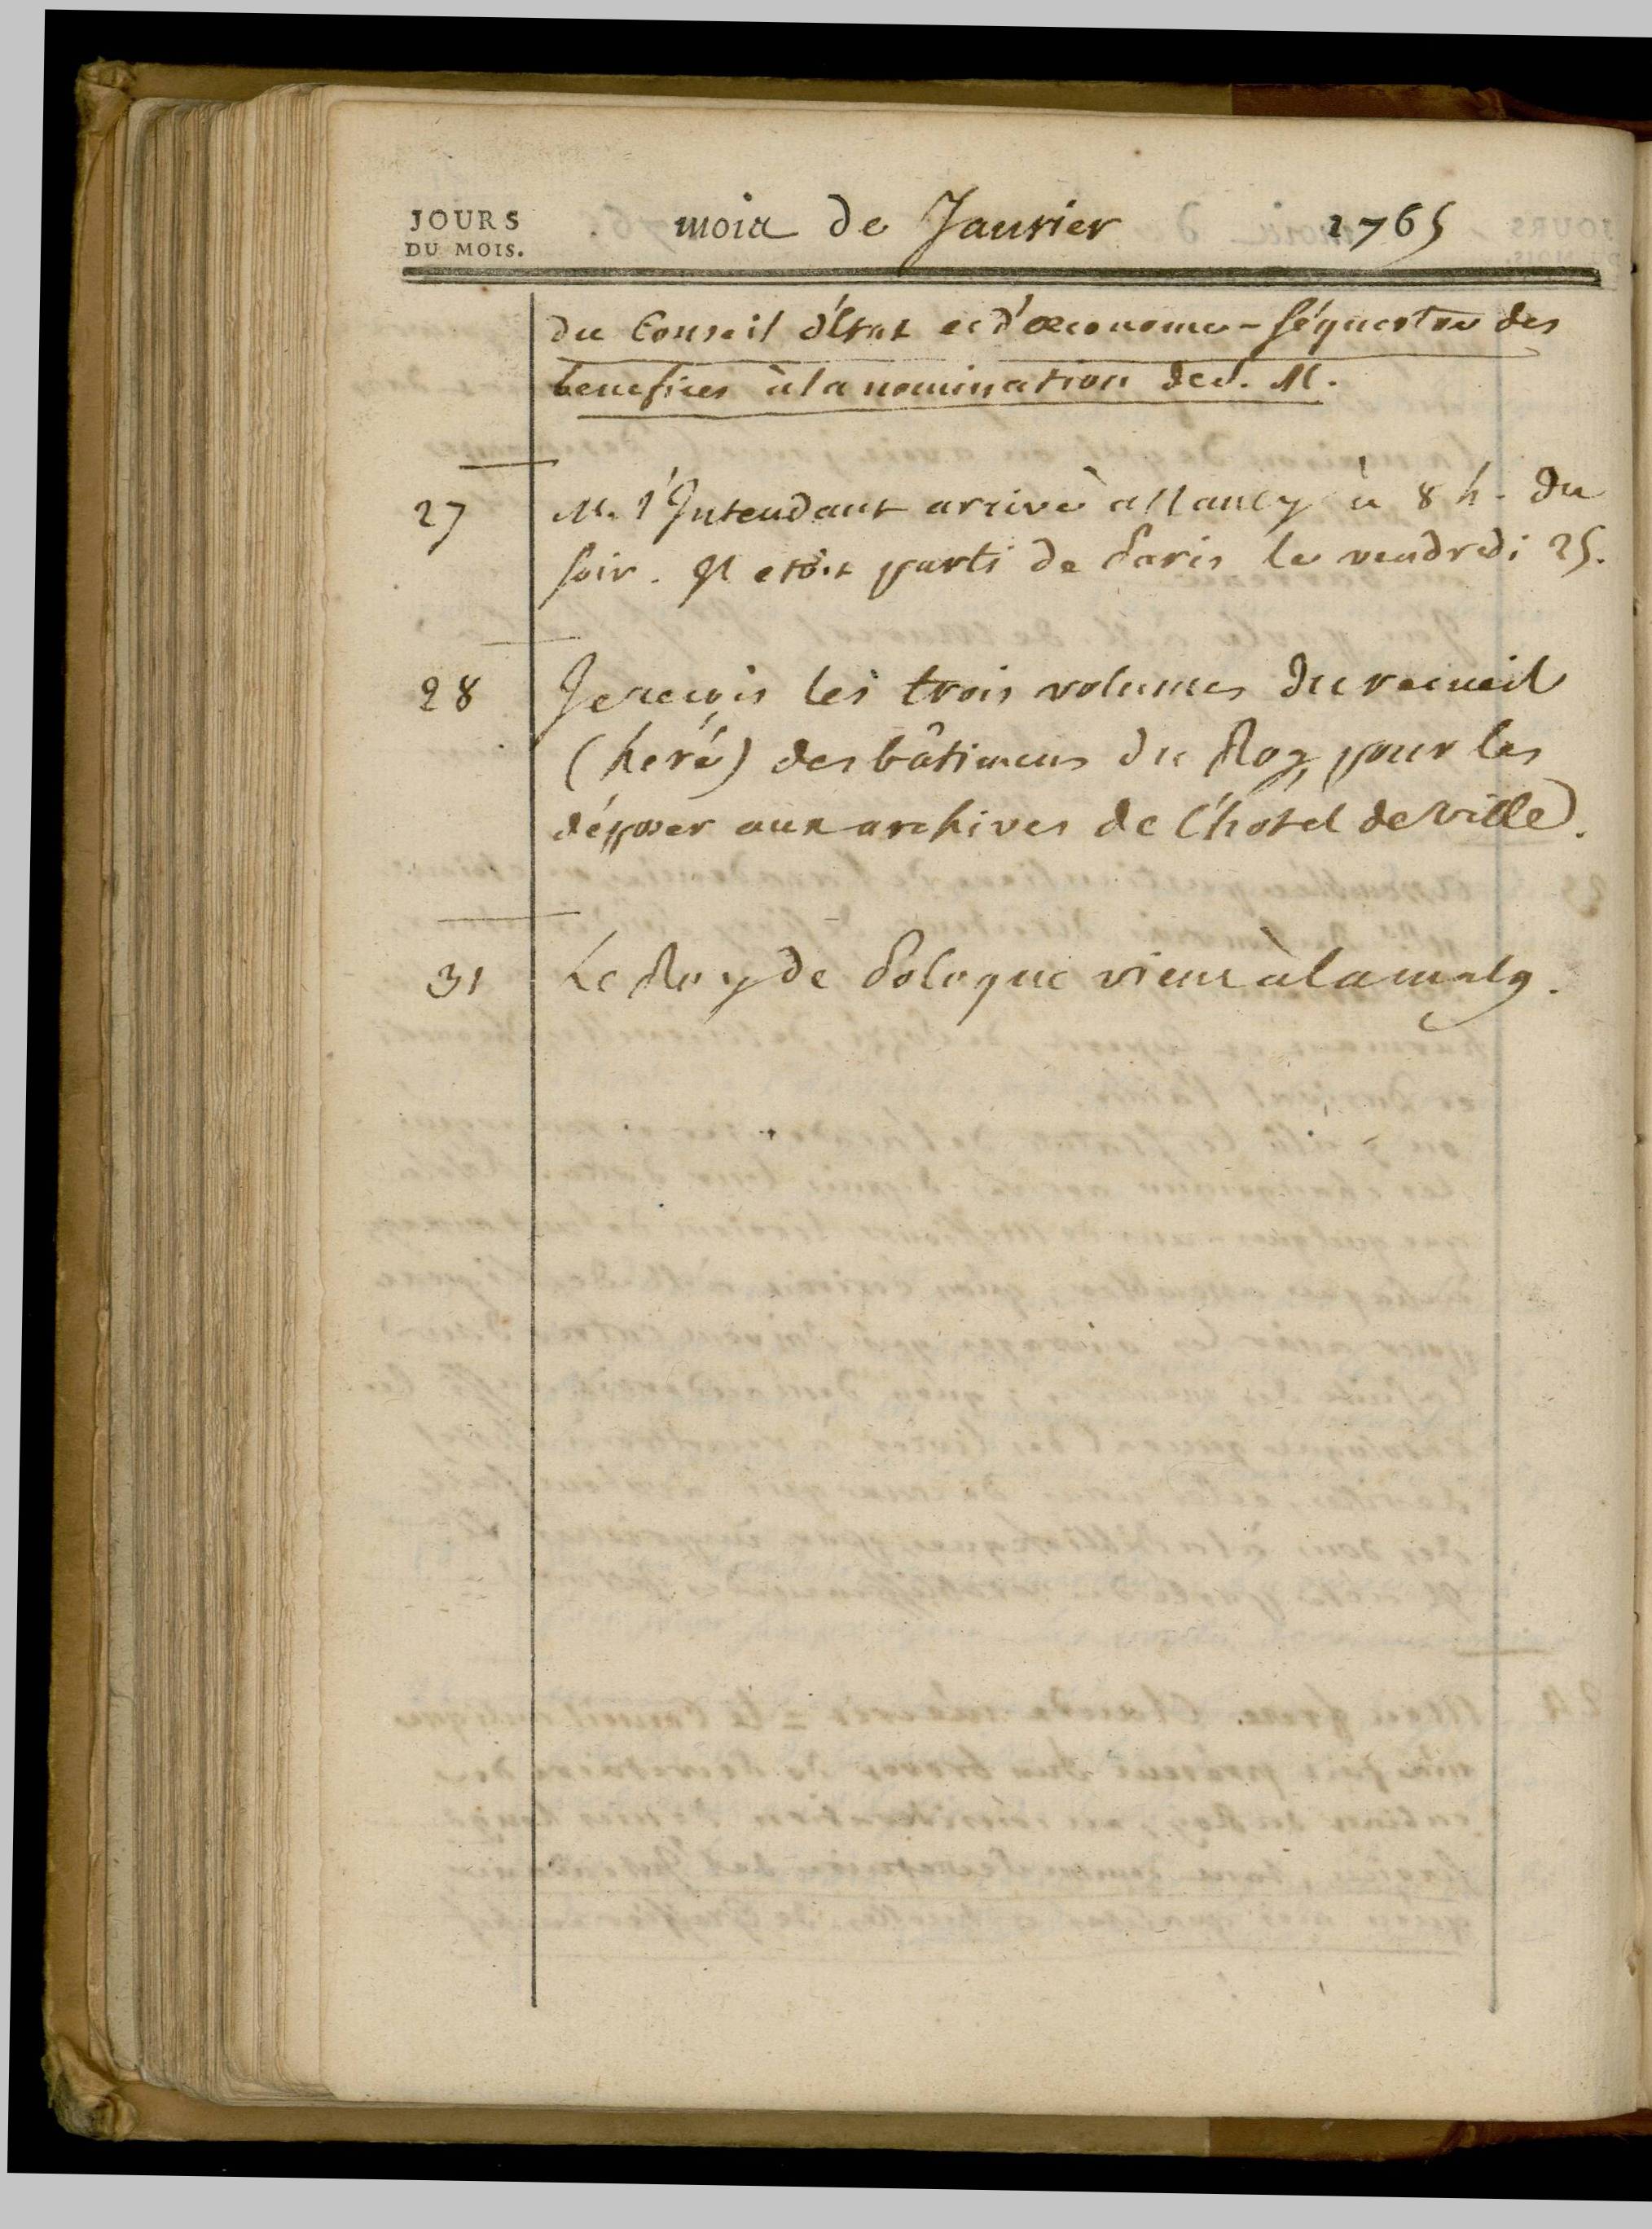 JOURS
DU MOIS.
mois de Janvier 1765
du Conseil d'Etat et d'œconome-séquestre des
benefices à la nomination de S. M.
27 M. l'Intendant arrive a Nancy à 8 h. du
soir. Il etoit parti de Paris le vendredi 25.
28 Je reçois les trois volumes du recueil
(heré) des bâtimens du Roy, pour les
déposer aux archives de l'hotel de ville.
31 Le Roy de Pologne vient à la malg.